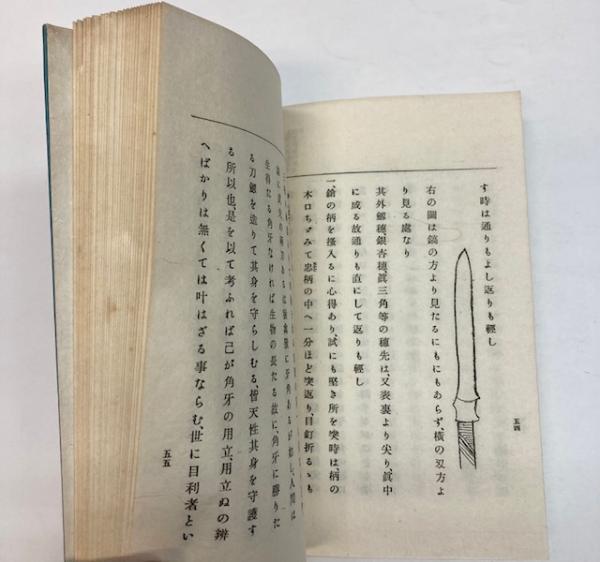 す時は通りもよし返りも輕し
右の圖は鎬の方より見たるにもにもあらず、橫の刄方よ
り見る處なり
其外鎺穗銀杏穗眞三角等の穗先は、又表裏より尖り、眞中
に成る故通りも直にして返りも輕し
一、鎗の柄を搔入るに心得あり、試にも堅き所を突時は、柄の
木口ちゞみて忠柄の中へ一分ほど突返り、目釘折るゝも
五四
生得たる角牙なければ生物の長たる故に、角牙に勝りた
る刀劔を造りて其身を守らしむる、皆天性其身を守護す
る所以也、是を以て考ふれば己が角牙の用立、用立ぬの辨
へばかりは無くては叶はざる事ならむ、世に目利者とい
五五